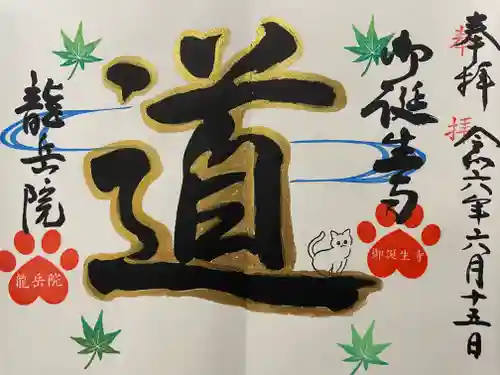 奉拝
奉拝 令六年六月十五日
御誕生寺
御誕生寺
道
龍岳院
龍岳院